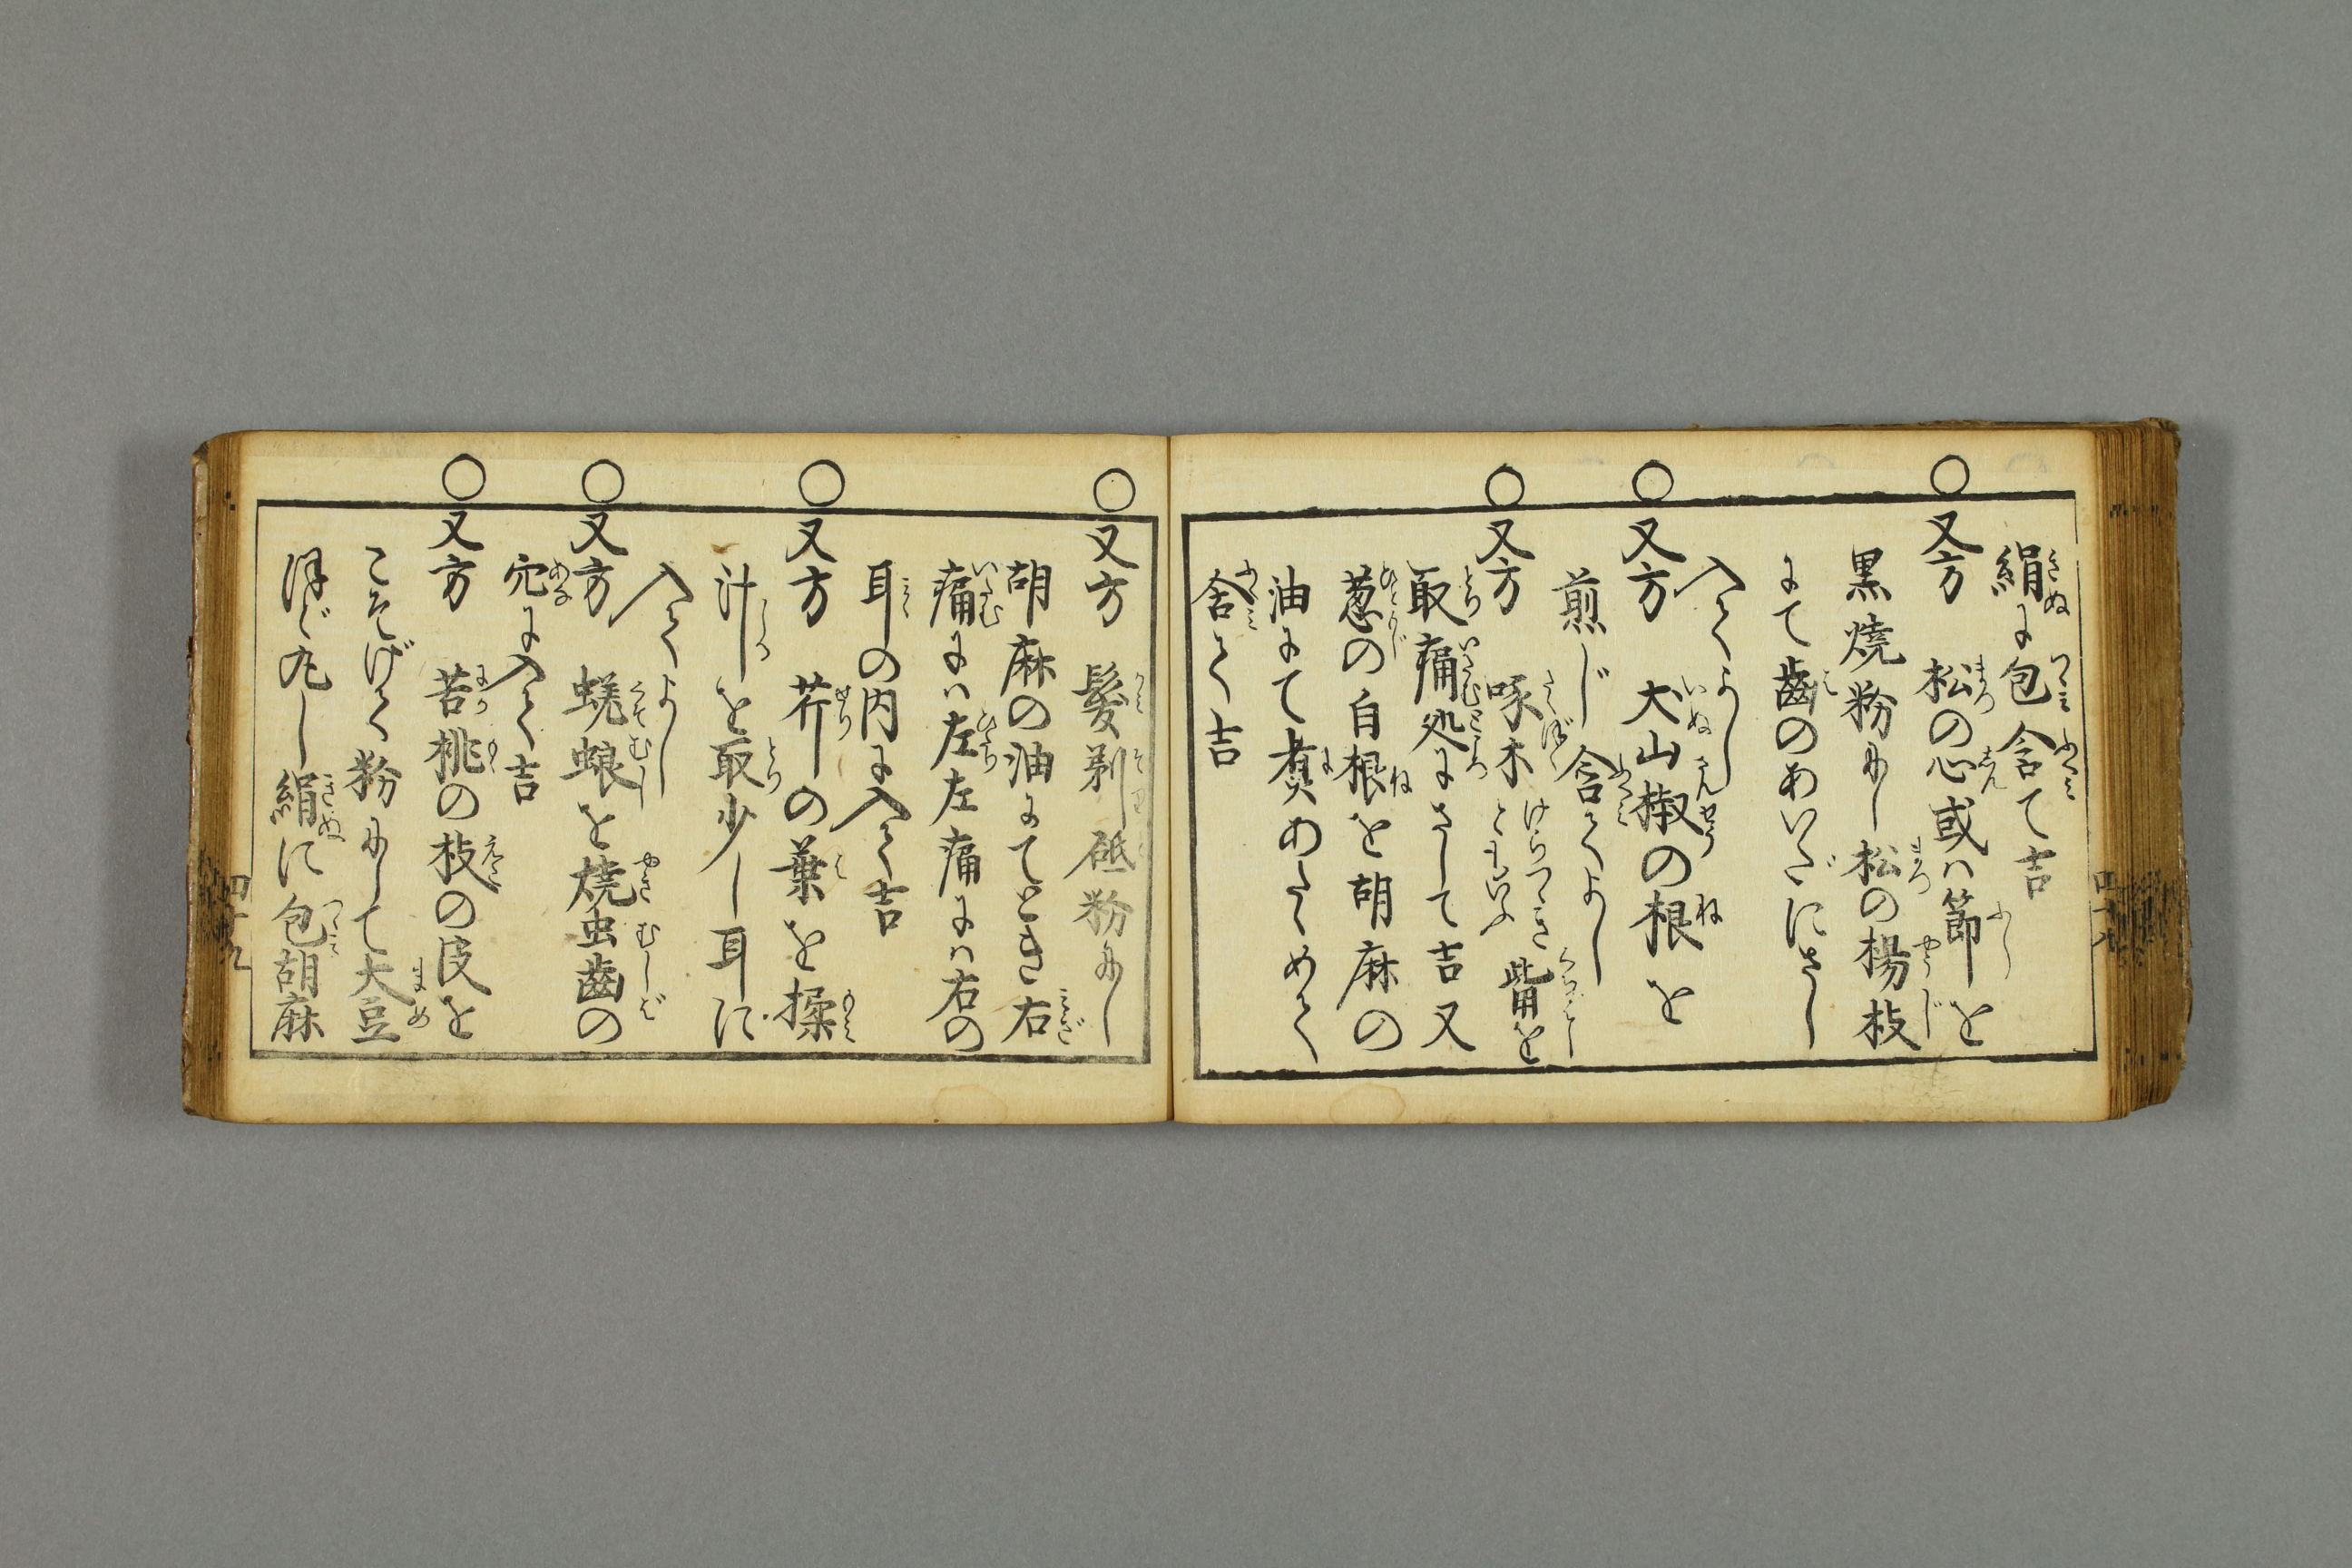 絹に包含て吉
○又方　松の心或ハ節を
黒焼粉にし松の楊枝
にて歯のあいだにさし
入てよし
○又方　犬山椒の根を
煎じ含てよし
○又方　啄木けらつゝきともいふ觜を
取痛処にさして吉又
葱の白根を胡麻の
油にて煮あたゝめて
含て吉
四十八
○又方　髪剃砥粉にし
胡麻の油にてとき右
痛にハ左左痛にハ右の
耳の内に入て吉
○又方　芥の葉を揉
汁を取少し耳に
入てよし
○又方　蜣蜋を焼虫歯の
穴に入て吉
○又方　苦桃の枝の皮を
こそげて粉にして大豆
ほど丸し絹に包胡麻
四十九